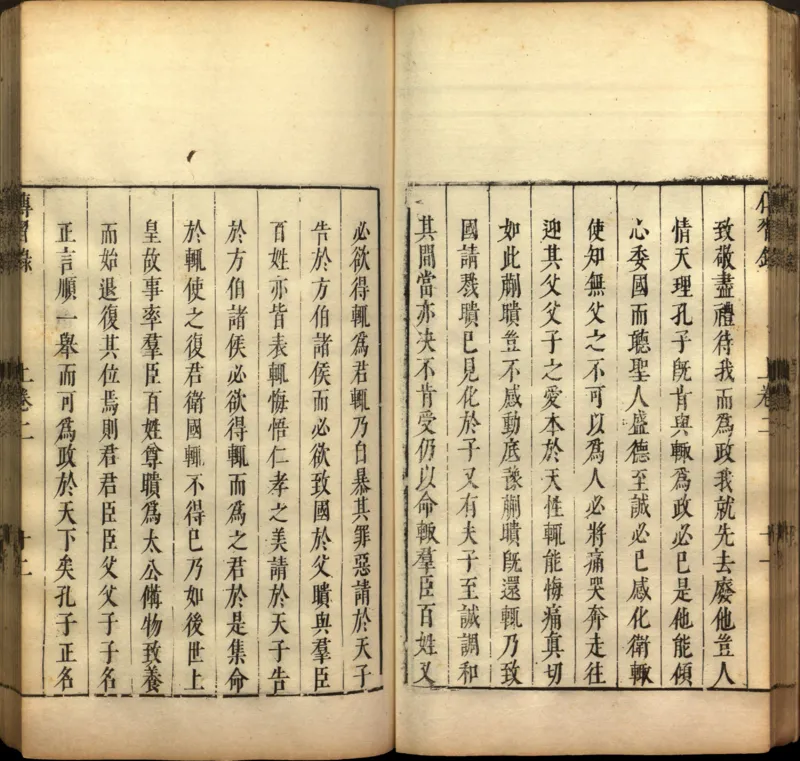 傳習錄
上卷二
十一
致敬盡禮待我而爲政我就先去廢他豈人
情天理孔子旣肯與輒爲政必已是他能傾
心委國而聽聖人盛德至誠必已感化衛輒
使知無父之不可以爲人必將痛哭奔走往
迎其父父子之愛本於天性輒能悔痛眞切
如此蒯聵豈不感動底豫蒯聵旣還輒乃致
國請戮聵已見化於子又有夫子至誠調和
其間當亦決不肯受仍以命輒羣臣百姓又
必欲得輒爲君輒乃自暴其罪惡請於天子
告於方伯諸侯而必欲致國於父聵與羣臣
百姓亦皆表輒悔悟仁孝之美請於天子告
於方伯諸侯必欲得輒而爲之君於是集命
於輒使之復君衛國輒不得已乃如後世上
皇故事率羣臣百姓尊聵爲太公備物致養
而始退復其位焉則君君臣臣父父子子名
正言順一舉而可爲政於天下矣孔子正名
傳習錄
上卷二
十二